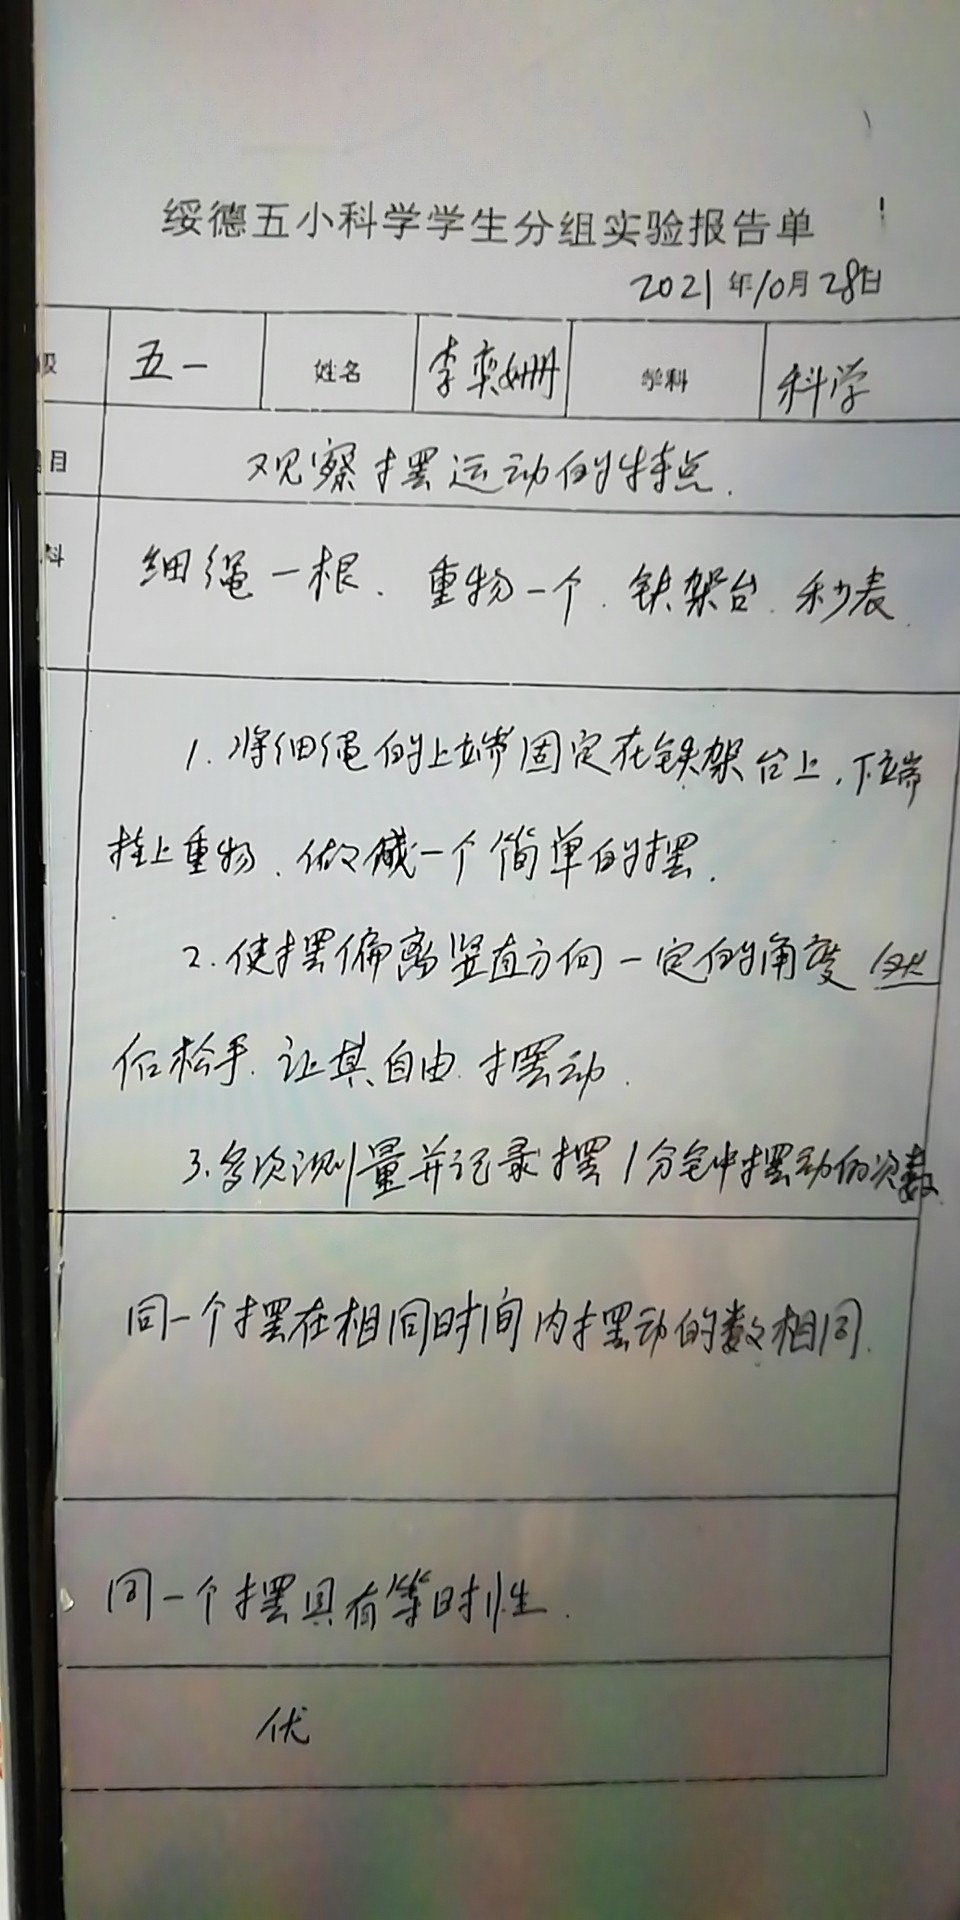 绥德五小科学学生分组实验报告单
2021年10月28日
级 五一 姓名 李奕姗 学科 科学
目 观察摆运动的特点.
料 细绳一根、重物一个.铁架台.秒表.
1.将细绳的上端固定在铁架台上,下端
挂上重物、做成一个简单的摆.
2.使摆偏离竖直方向一定的角度 然
后松手.让其自由.摆动.
3.多次测量并记录摆1分钟中摆动的次数
同一个摆在相同时间内摆动的数相同.
同一个摆具有等时性.
优